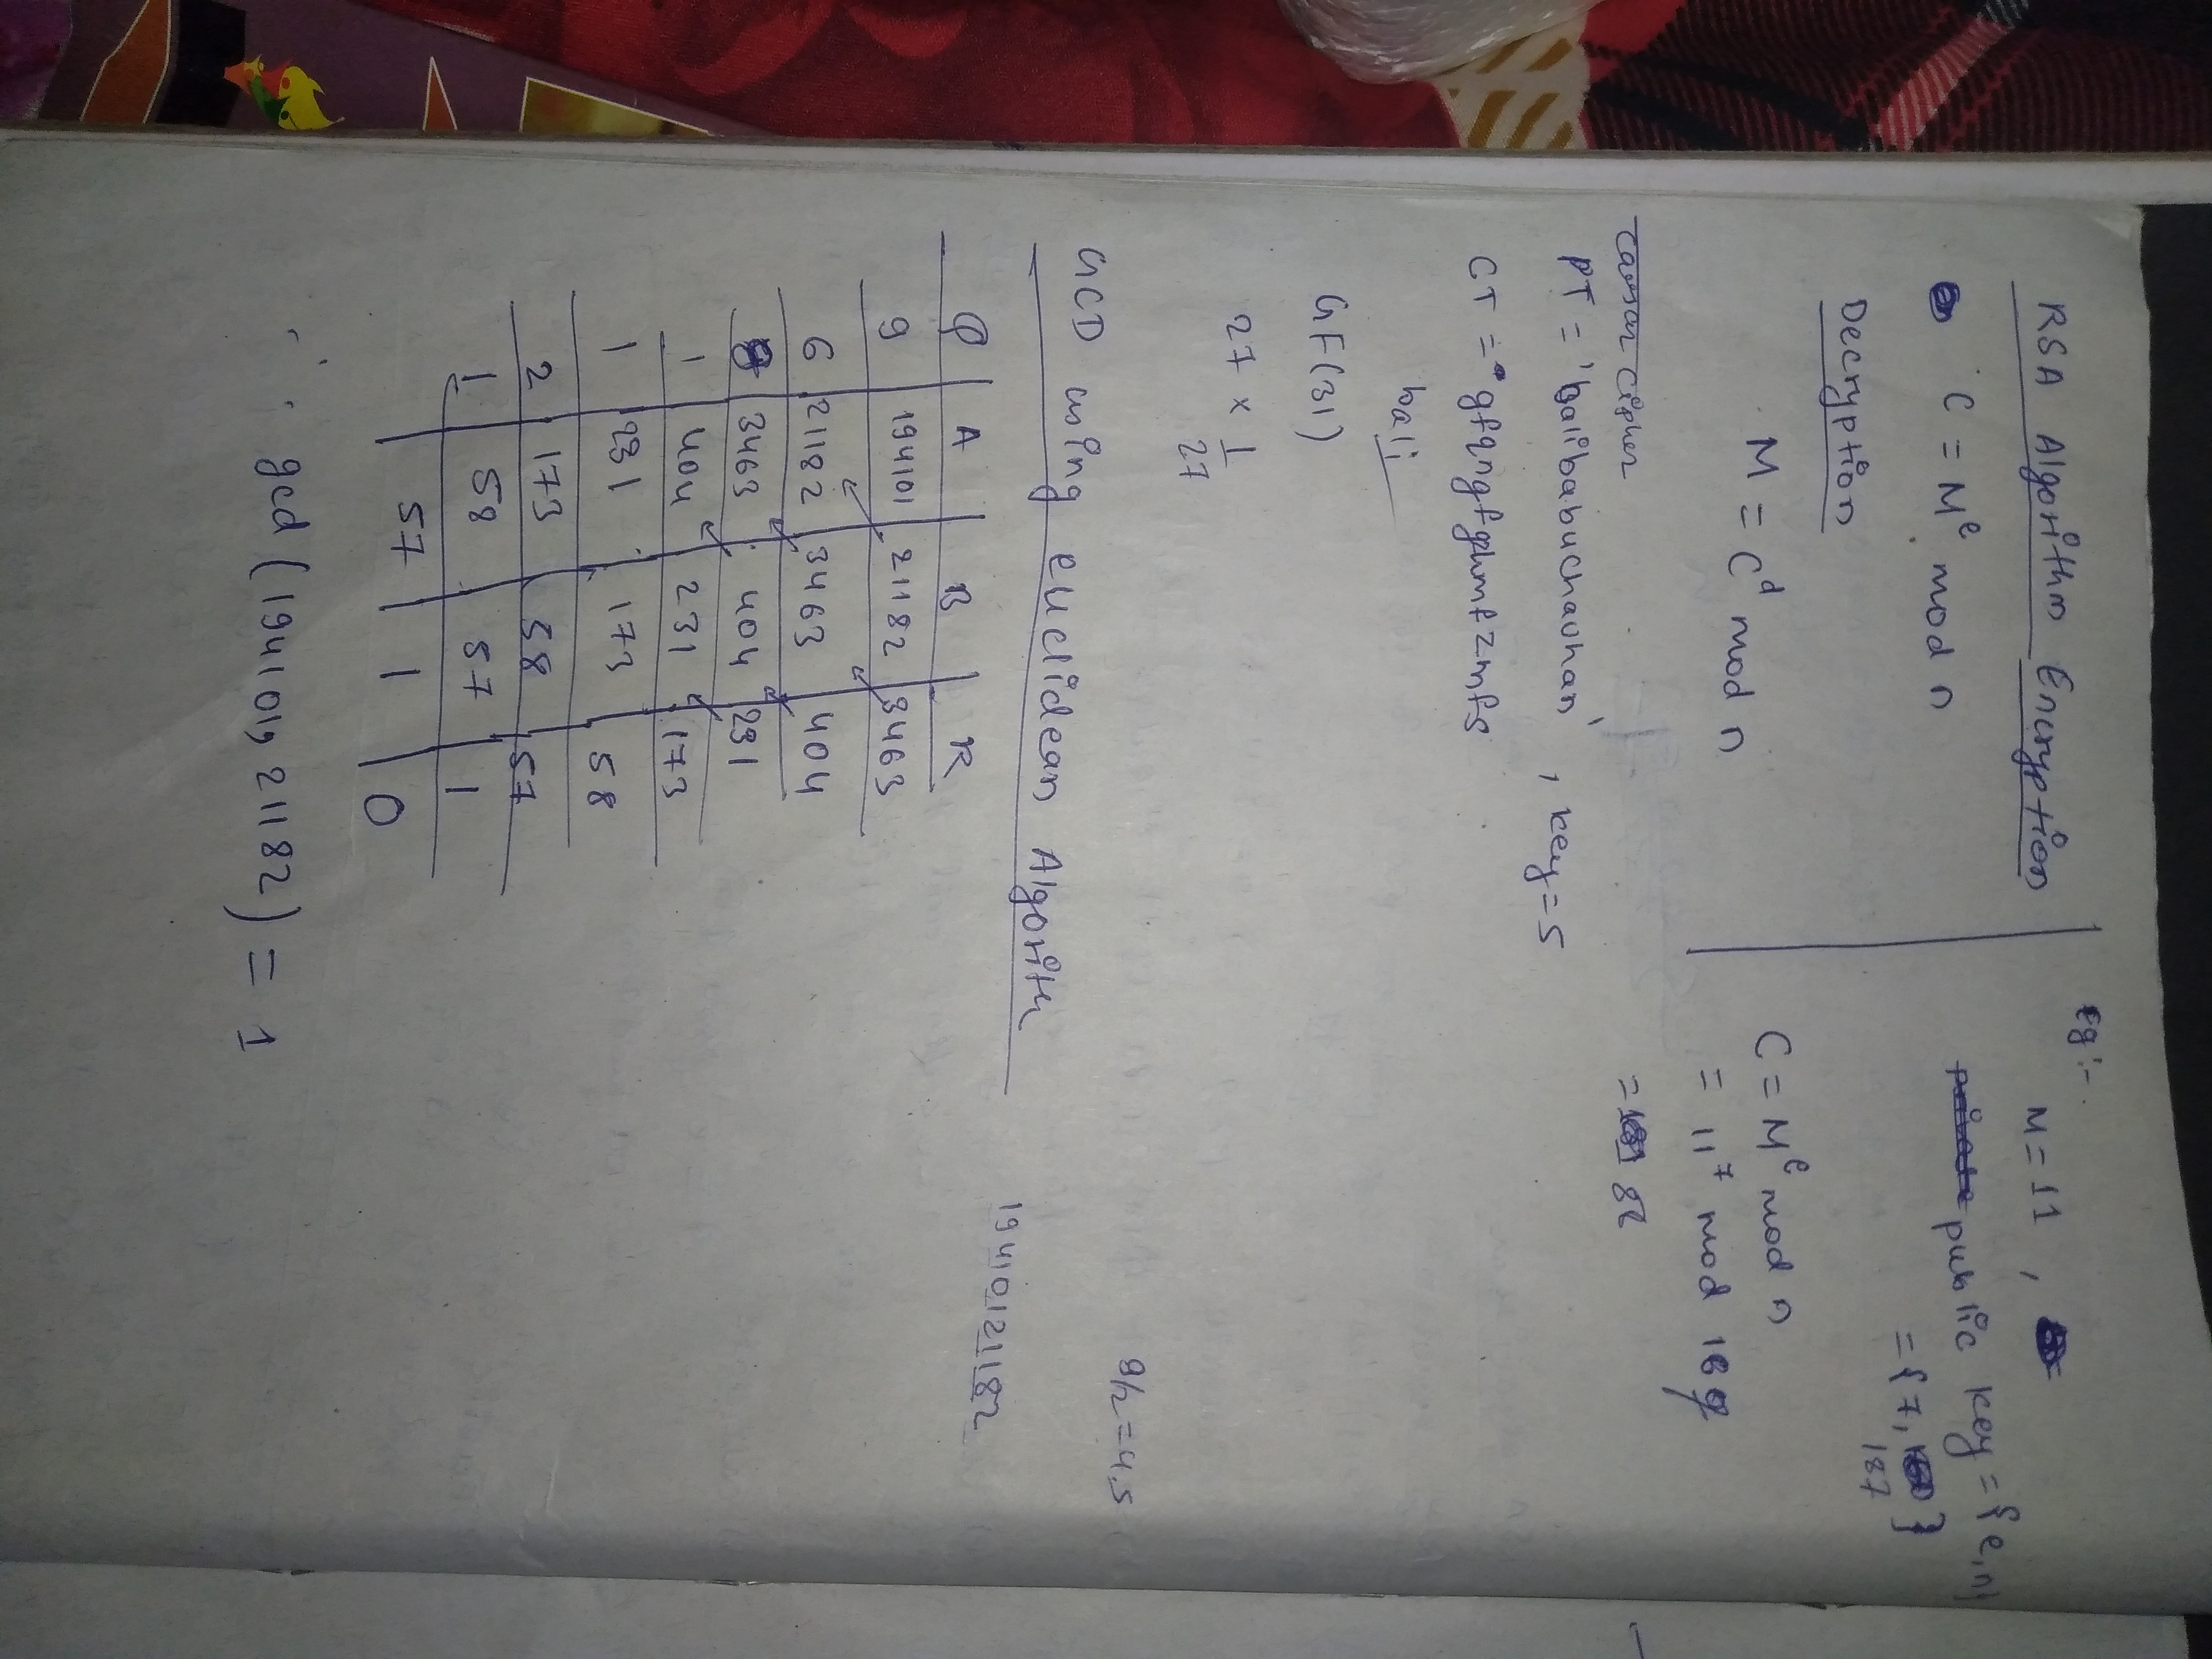 RSA Algorithm Encryption
C = M^e mod n
Decryption
M = C^d mod n
Eg:-
M = 11 ,
public key = {e,n}
= {7, }
187
C = M^e mod n
= 11^7 mod
= 88
Caesar cipher
PT = 'balibabuchauhan' , key = 5
CT =
bali
GF(31)
27 × 1/27
9/2 = 4.5
GCD using euclidean Algorithm
194101 21182
Q A B R
9 194101 21182 3463
6 21182 3463 404
8 3463 404 231
1 404 231 173
1 231 173 58
2 173 58 57
1 58 57 1
57 1 0
∴ gcd (194101, 21182) = 1